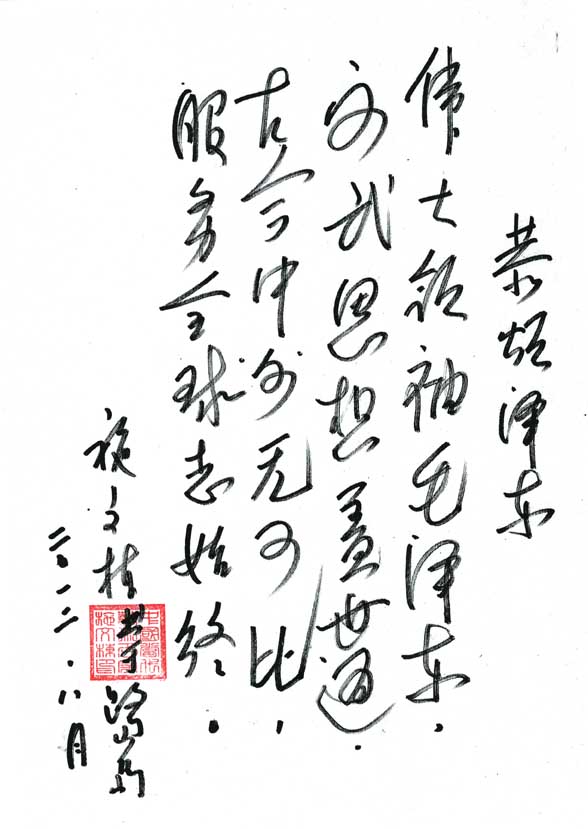 恭颂泽东
伟大领袖毛泽东，
文武思想盖世通.
古今中外无可比，
服务全球志始终.
施文
二0一二.八月